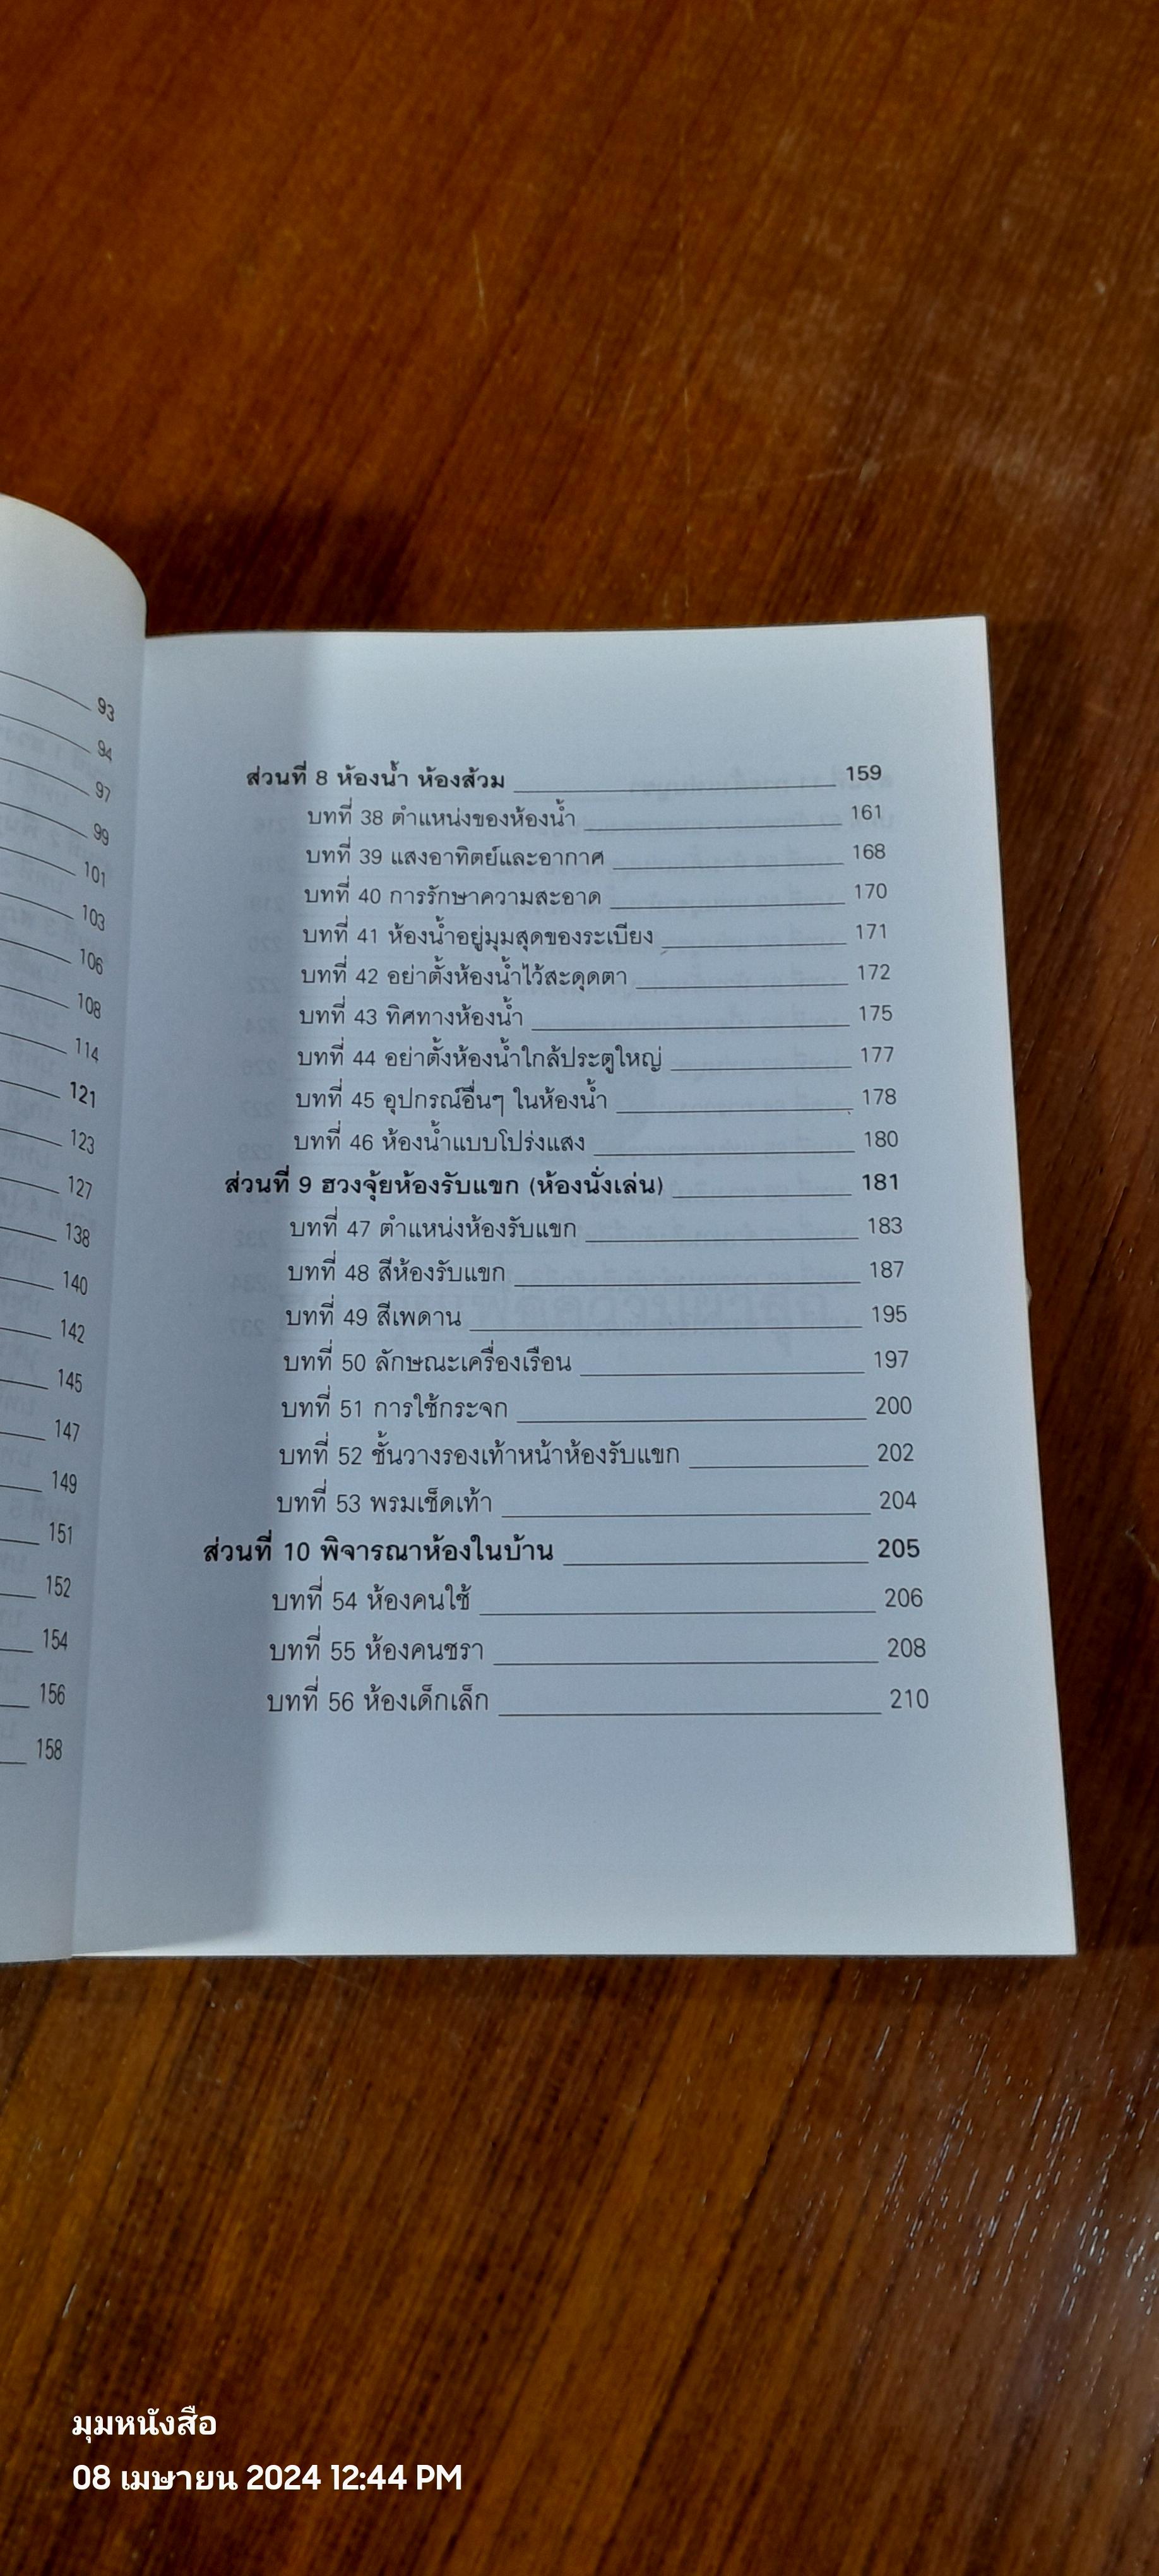 93
94
97
99
101
103
106
108
114
121
123
127
138
140
142
145
147
149
151
152
154
156
158
ส่วนที่ 8 ห้องน้ำ ห้องส้วม 159
บทที่ 38 ตำแหน่งของห้องน้ำ 161
บทที่ 39 แสงอาทิตย์และอากาศ 168
บทที่ 40 การรักษาความสะอาด 170
บทที่ 41 ห้องน้ำอยู่มุมสุดของระเบียง 171
บทที่ 42 อย่าตั้งห้องน้ำไว้สะดุดตา 172
บทที่ 43 ทิศทางห้องน้ำ 175
บทที่ 44 อย่าตั้งห้องน้ำใกล้ประตูใหญ่ 177
บทที่ 45 อุปกรณ์อื่นๆ ในห้องน้ำ 178
บทที่ 46 ห้องน้ำแบบโปร่งแสง 180
ส่วนที่ 9 ฮวงจุ้ยห้องรับแขก (ห้องนั่งเล่น) 181
บทที่ 47 ตำแหน่งห้องรับแขก 183
บทที่ 48 สีห้องรับแขก 187
บทที่ 49 สีเพดาน 195
บทที่ 50 ลักษณะเครื่องเรือน 197
บทที่ 51 การใช้กระจก 200
บทที่ 52 ชั้นวางรองเท้าหน้าห้องรับแขก 202
บทที่ 53 พรมเช็ดเท้า 204
ส่วนที่ 10 พิจารณาห้องในบ้าน 205
บทที่ 54 ห้องคนใช้ 206
บทที่ 55 ห้องคนชรา 208
บทที่ 56 ห้องเด็กเล็ก 210
มุมหนังสือ
08 เมษายน 2024 12:44 PM